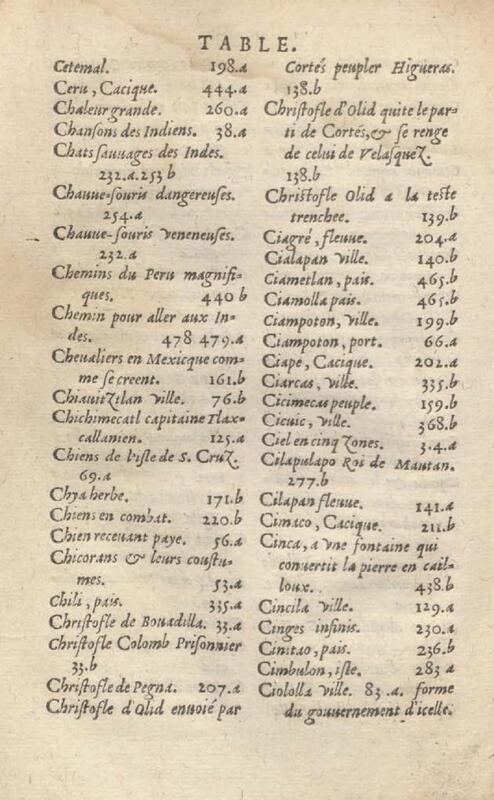 TABLE.
Cetemal. 198.a
Ceru, Cacique. 444.a
Chaleur grande. 260.a
Chansons des Indiens. 38.a
Chats sauuages des Indes.
232.a.253 b
Chauue-souris dangereuses.
254.a
Chauue-souris veneneuses.
232.a
Chemins du Peru magnifi-
ques. 440 b
Chemin pour aller aux In-
des. 478 479.a
Cheualiers en Mexicque com-
me se creent. 161.b
Chiauitztlan ville. 76.b
Chichimecatl capitaine Tlax-
callanien. 125.a
Chiens de l'isle de S. Cruz.
69.a
Chya herbe. 171.b
Chiens en combat. 220.b
Chien receuant paye. 56.a
Chicorans & leurs coustu-
mes. 53.a
Chili, pais. 335.a
Christofle de Bouadilla. 33.a
Christofle Colomb Prisonnier
33.b
Christofle de Pegna. 207.a
Christofle d'Olid enuoié par
Cortés peupler Higueras.
138.b
Christofle d'Olid quite le par-
ti de Cortés, & se renge
de celui de Velasquez.
138.b
Christofle Olid a la teste
trenchee. 139.b
Ciagré, fleuue. 204.a
Cialapan ville. 140.b
Ciametlan, pais. 465.b
Ciamolla pais. 465.b
Ciampoton, ville. 199.b
Ciampoton, port. 66.a
Ciape, Cacique. 202.a
Ciarcas, ville. 335.b
Cicimecas peuple. 159.b
Cicuic, ville. 368.b
Ciel en cinq zones. 3.4.a
Cilapulapo Roi de Mautan.
277.b
Cilapan fleuue. 141.a
Cimaco, Cacique. 211.b
Cinca, a vne fontaine qui
conuertit la pierre en cail-
loux. 438.b
Cincila ville. 129.a
Cinges infinis. 230.a
Cinitao, pais. 236.b
Cimbulon, isle. 283 a
Ciololla ville. 83 .a. forme
du gouuernement d'icelle.